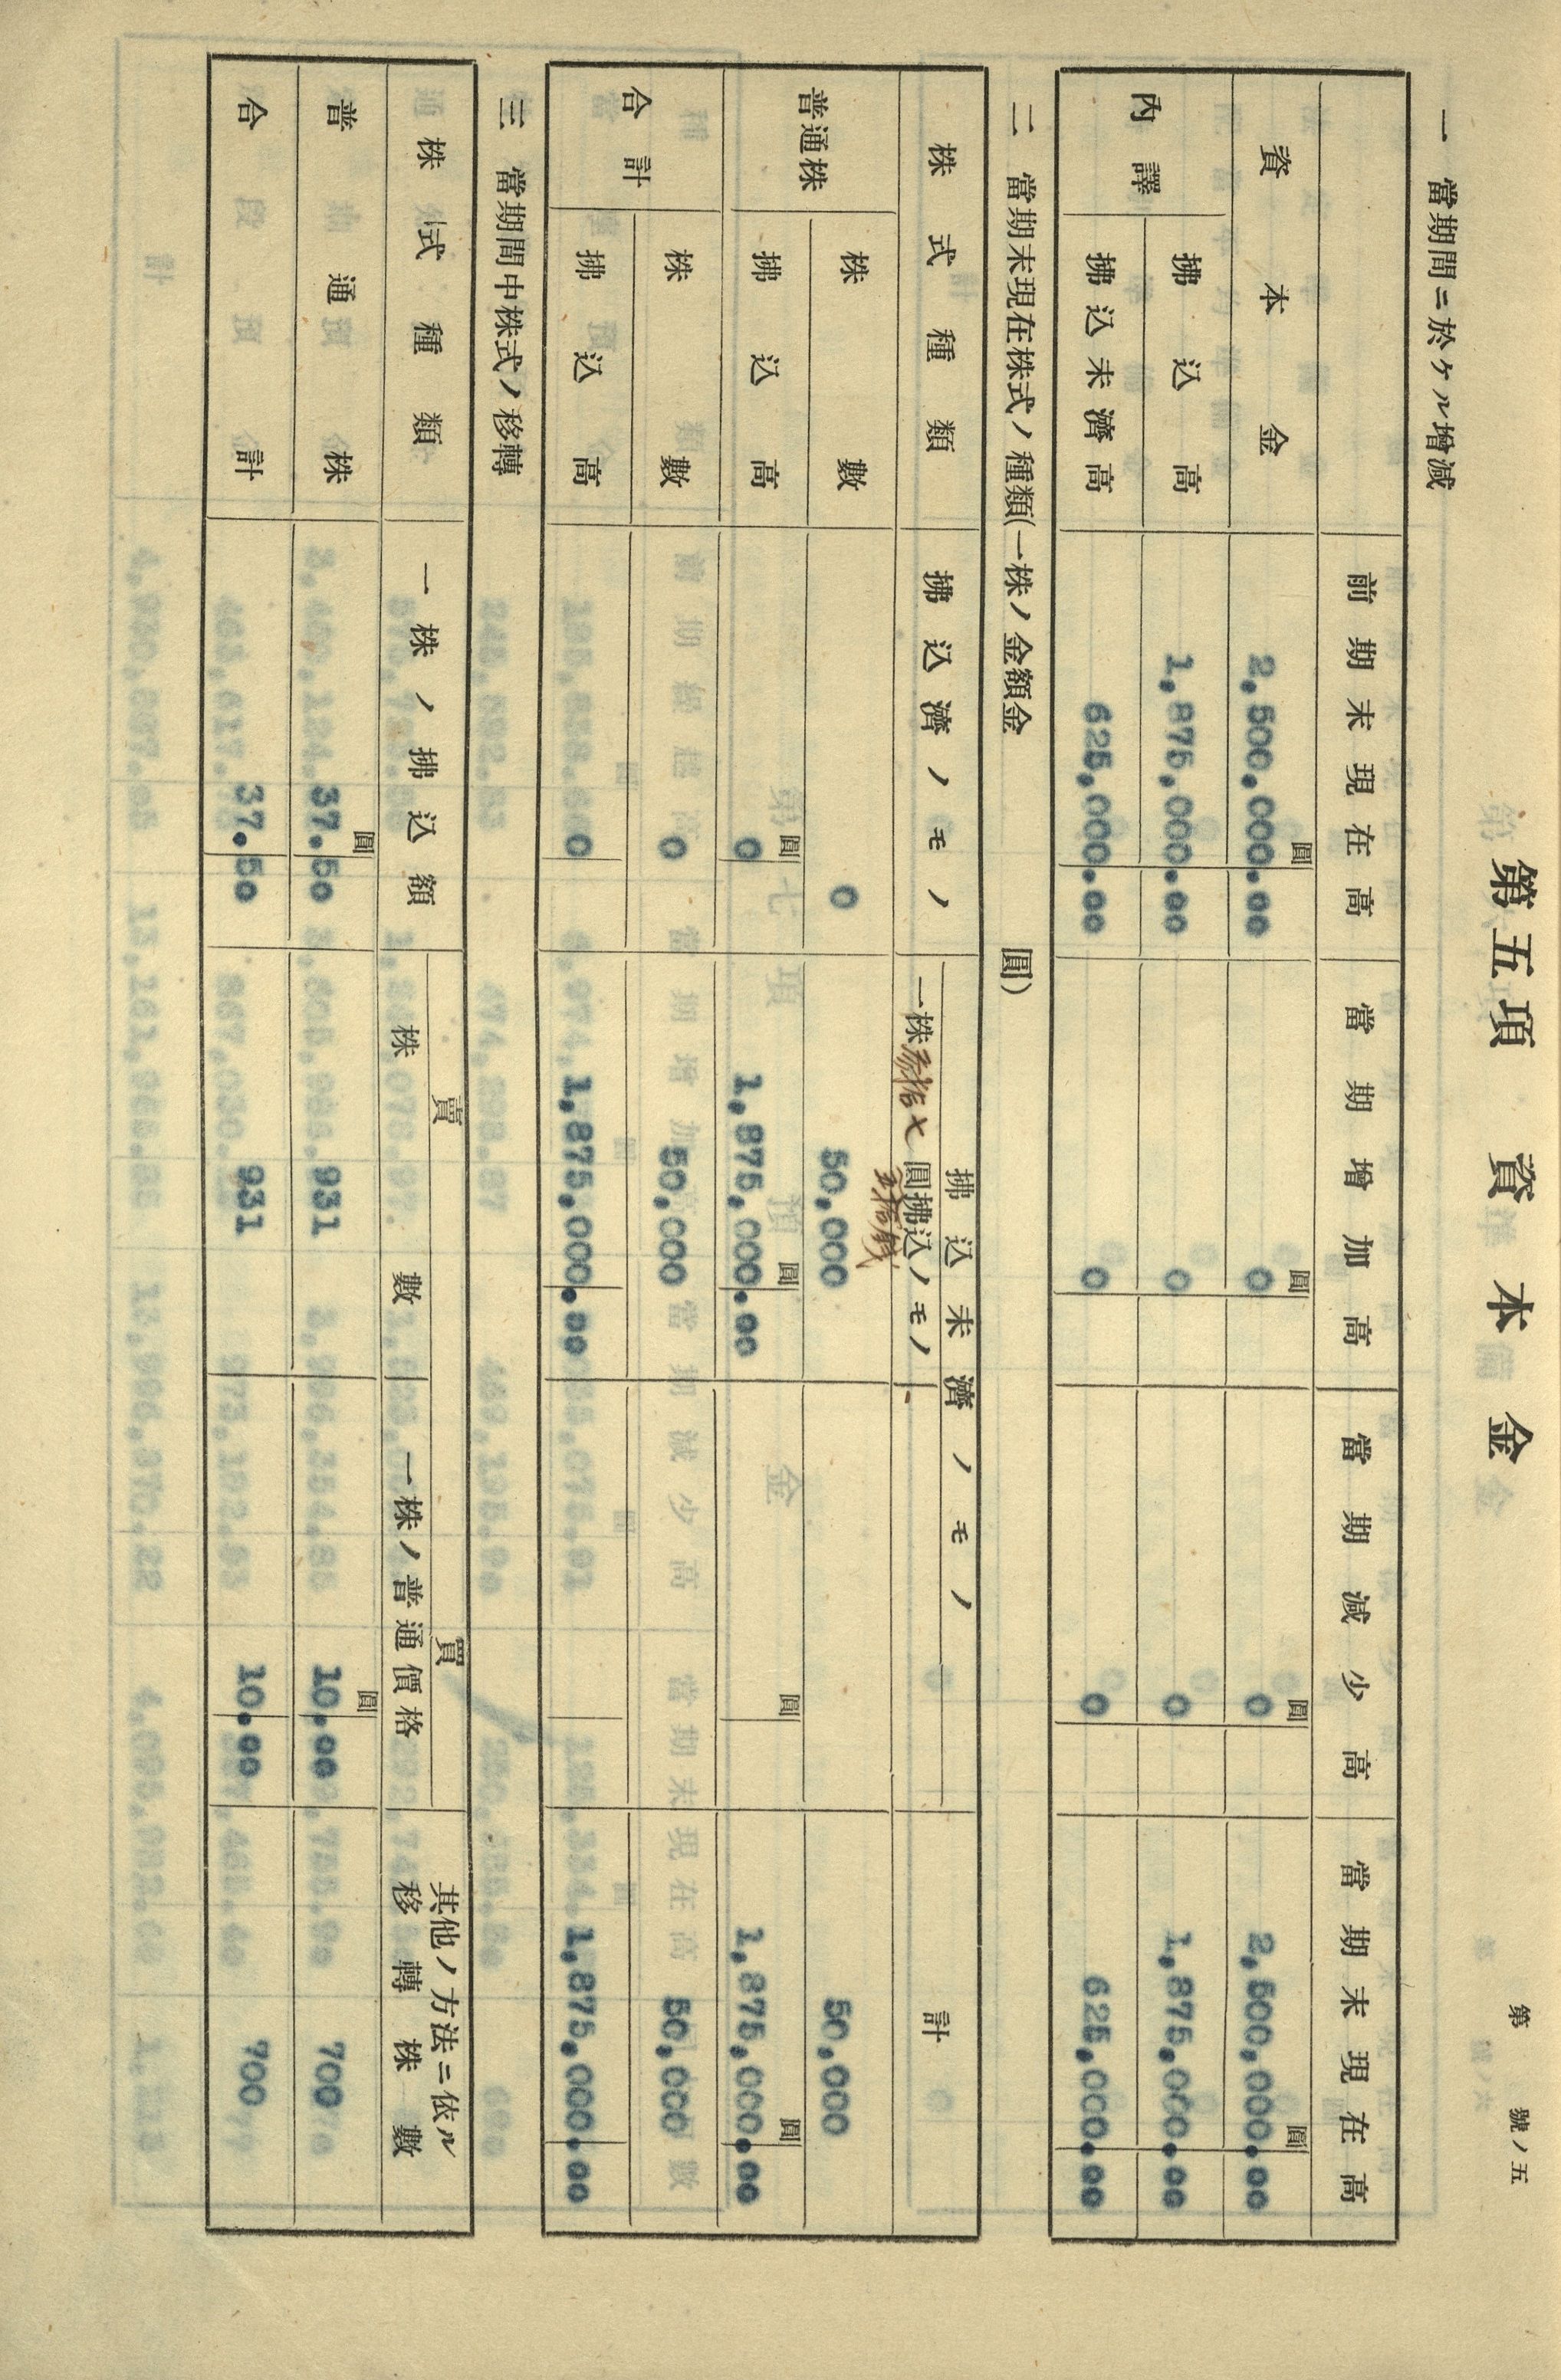 第 號ノ五
第五項 資本金
一 當期間ニ於ケル增減
前期末現在高 當期增加高 當期減少高 當期末現在高
資本金 2,500,000.00圓 0圓 0圓 2,500,000.00圓
內譯 拂込高 1,875,000.00 0 0 1,875,000.00
拂込未濟高 625,000.00 0 0 625,000.00
二 當期末現在株式ノ種類(一株ノ金額金 圓)
株式種類 拂込濟ノモノ 拂込未濟ノモノ 計
一株參拾七圓拂込ノモノ
五拾錢
普通株 株數 0 50,000 50,000
拂込高 0圓 1,875,000.00圓 圓 1,875,000.00圓
合計 株數 0 50,000 50,000
拂込高 0 1,875,000.00 1,875,000.00
三 當期間中株式ノ移轉
株式種類 一株ノ拂込額 賣買 其他ノ方法ニ依ル
株數 一株ノ普通價格 移轉株數
普通株 37.50圓 931 10.00圓 700
合計 37.50 931 10.00 700